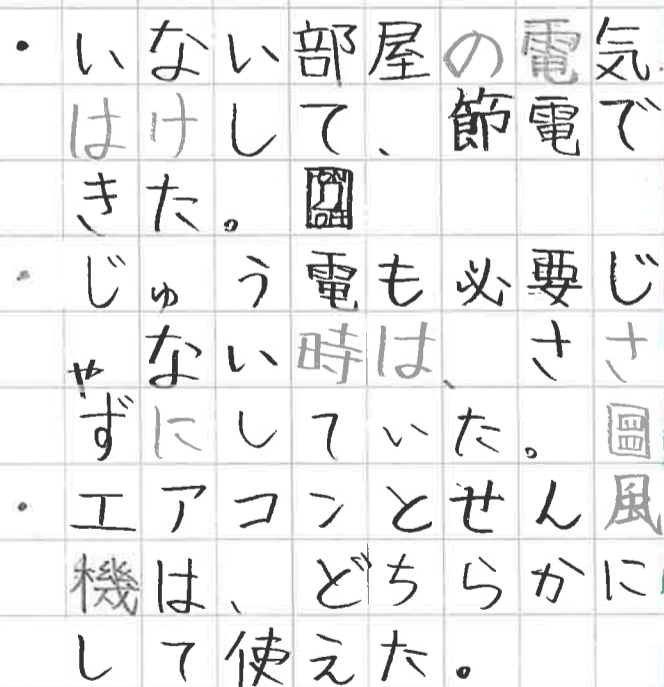 ・いない部屋の電気
はけして、節電で
きた。
・じゅう電も必要じ
ゃない時は、ささ
ずにしていた。
・エアコンとせん風
機は、どちらかに
して使えた。